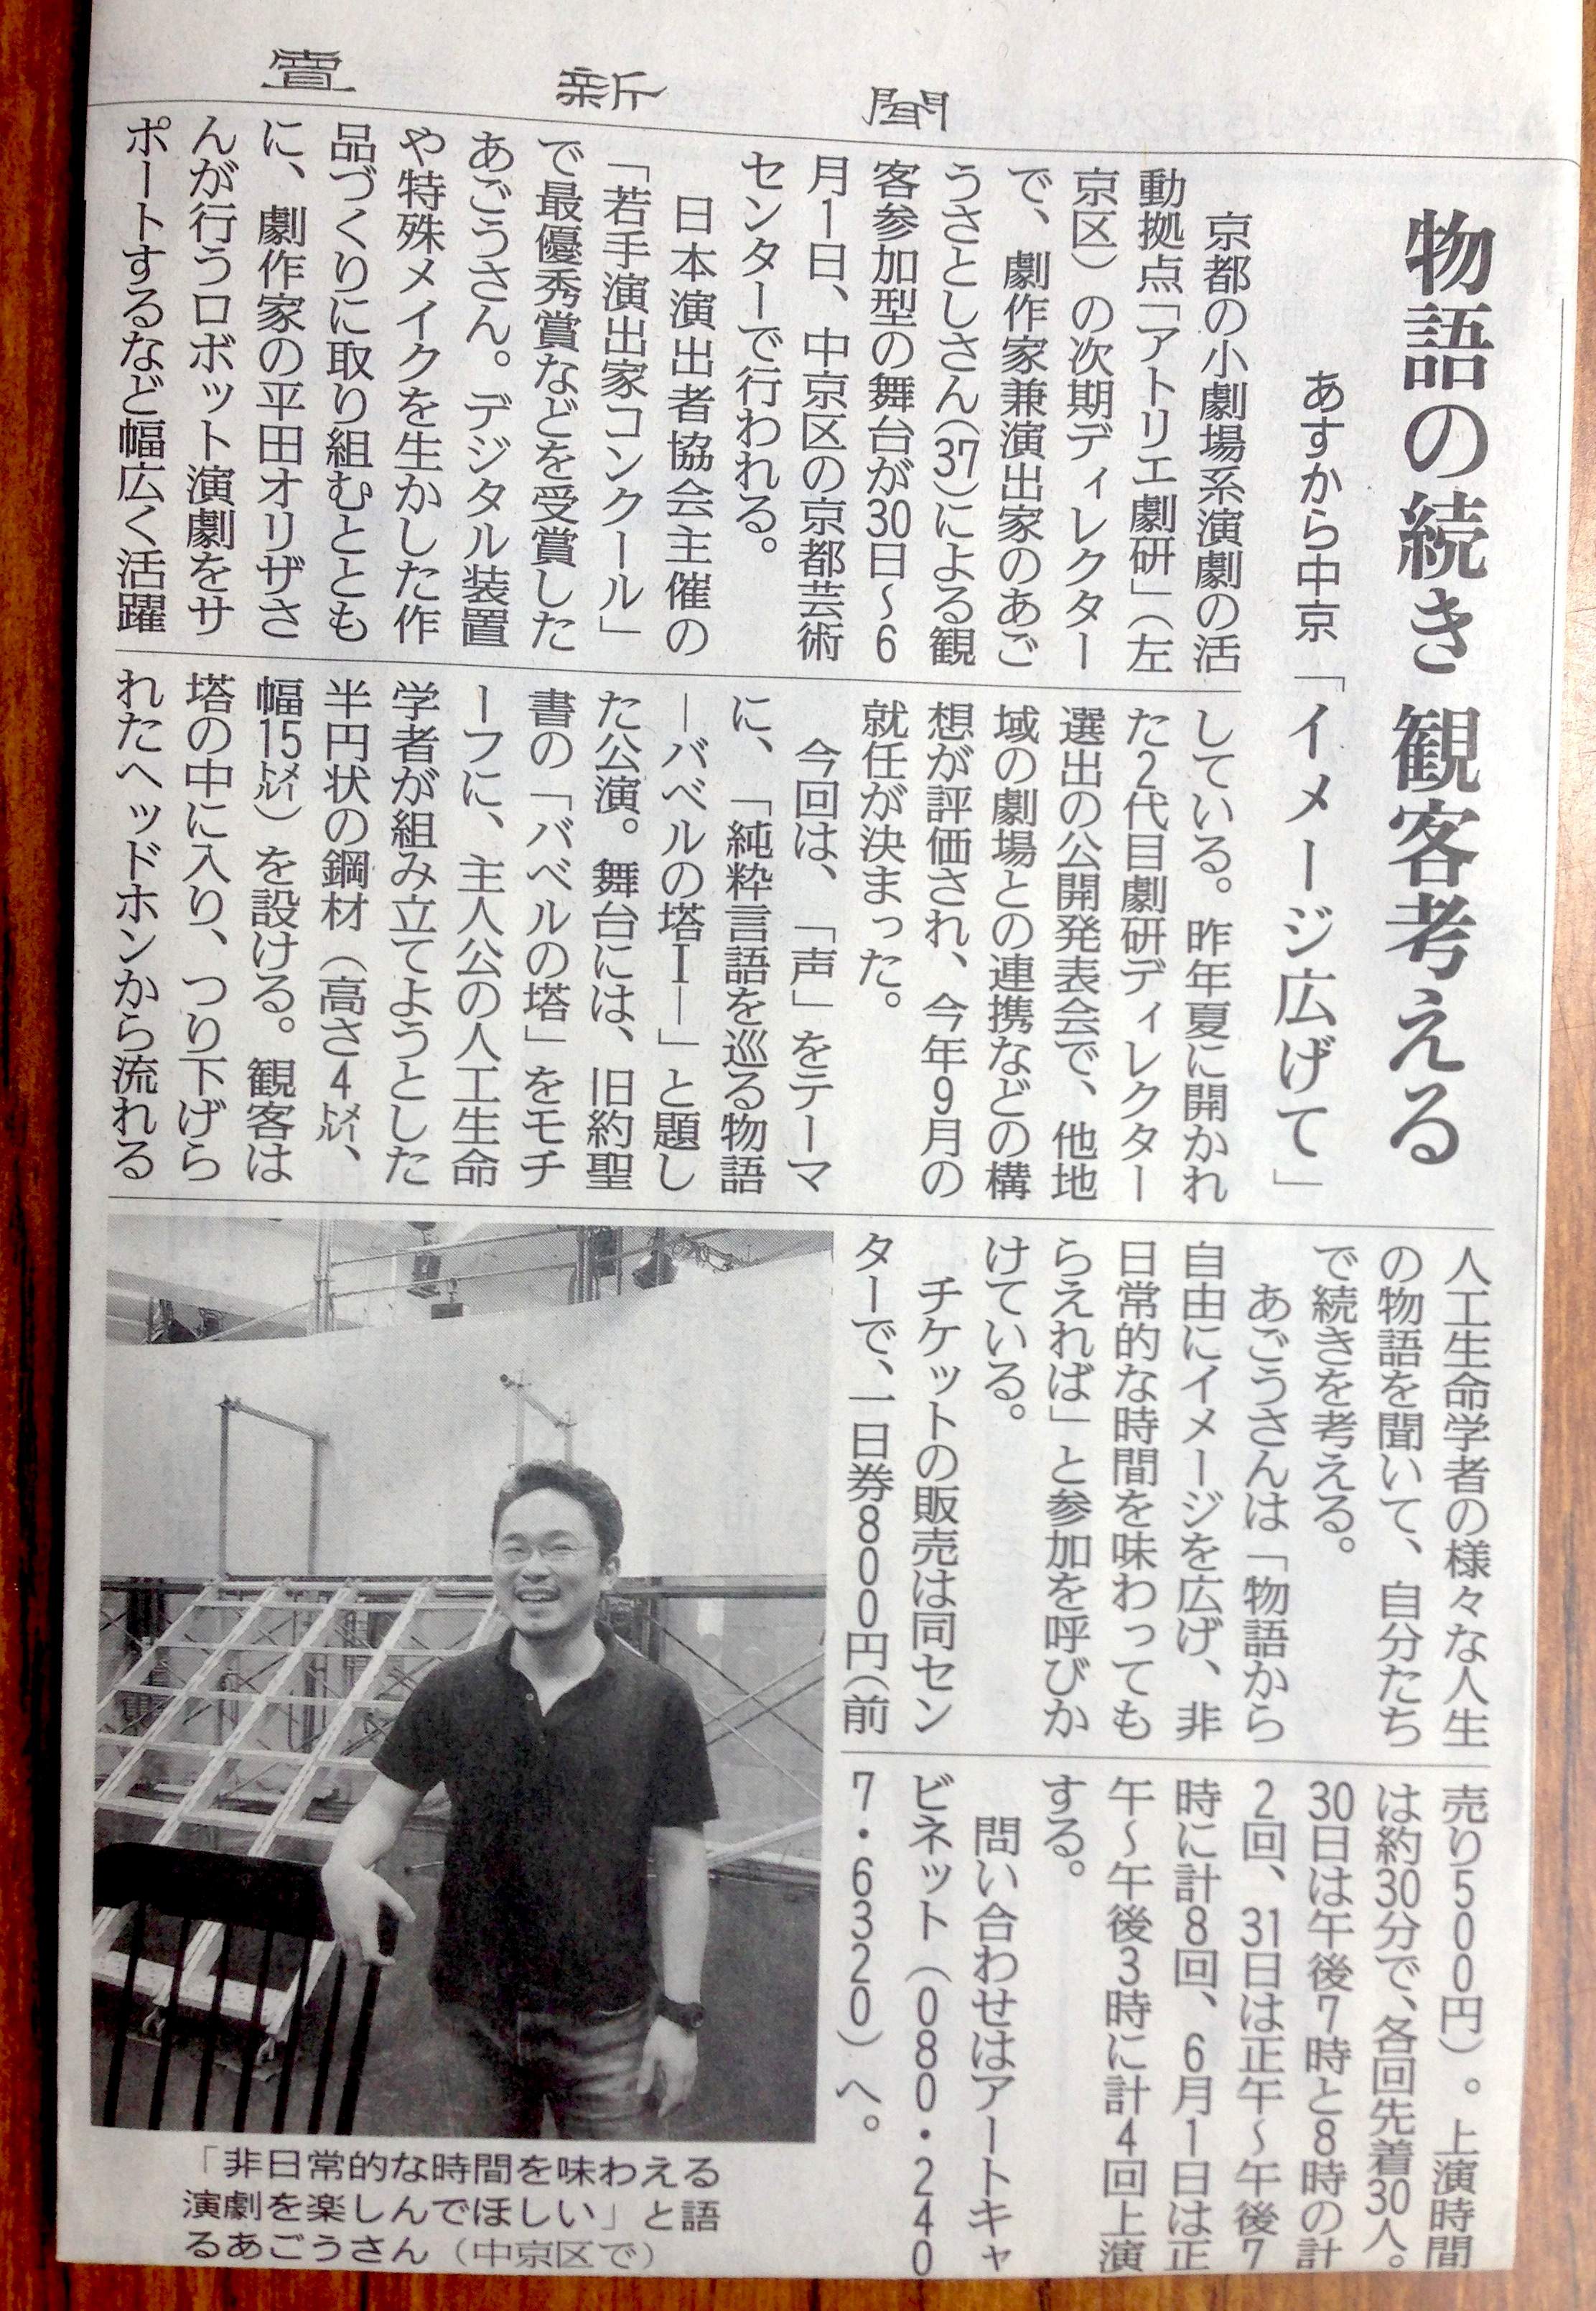 賣新聞
物語の続き 観客考える
あすから中京 「イメージ広げて」
京都の小劇場系演劇の活
動拠点「アトリエ劇研」（左
京区）の次期ディレクター
で、劇作家兼演出家のあご
うさとしさん(37)による観
客参加型の舞台が30日〜6
月1日、中京区の京都芸術
センターで行われる。
日本演出者協会主催の
「若手演出家コンクール」
で最優秀賞などを受賞した
あごうさん。デジタル装置
や特殊メイクを生かした作
品づくりに取り組むととも
に、劇作家の平田オリザさ
んが行うロボット演劇をサ
ポートするなど幅広く活躍
している。昨年夏に開かれ
た2代目劇研ディレクター
選出の公開発表会で、他地
域の劇場との連携などの構
想が評価され、今年9月の
就任が決まった。
今回は、「声」をテーマ
に、「純粋言語を巡る物語
―バベルの塔Ⅰ―」と題し
た公演。舞台には、旧約聖
書の「バベルの塔」をモチ
ーフに、主人公の人工生命
学者が組み立てようとした
半円状の鋼材（高さ4㍍、
幅15㍍）を設ける。観客は
塔の中に入り、つり下げら
れたヘッドホンから流れる
人工生命学者の様々な人生
の物語を聞いて、自分たち
で続きを考える。
あごうさんは「物語から
自由にイメージを広げ、非
日常的な時間を味わっても
らえれば」と参加を呼びか
けている。
チケットの販売は同セン
ターで、一日券800円（前
売り500円）。上演時間
は約30分で、各回先着30人。
30日は午後7時と8時の計
2回、31日は正午〜午後7
時に計8回、6月1日は正
午〜午後3時に計4回上演
する。
問い合わせはアートキャ
ビネット（080・240
7・6320）へ。
「非日常的な時間を味わえる
演劇を楽しんでほしい」と語
るあごうさん（中京区で）